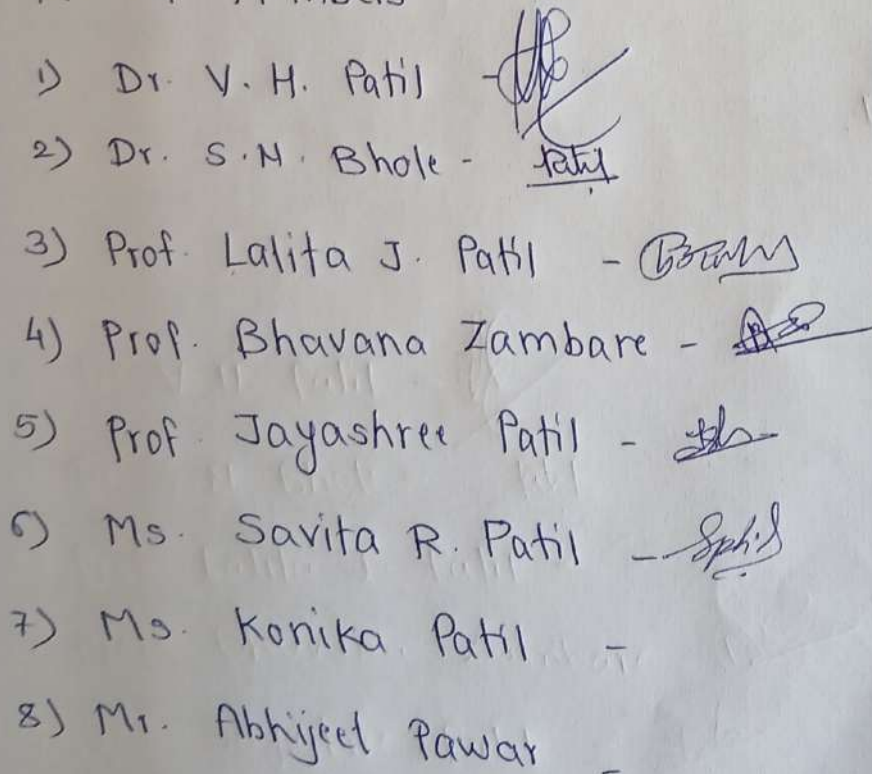 1) Dr. V. H. Patil -
2) Dr. S. N. Bhole - Patil
3) Prof. Lalita J. Patil -
4) Prof. Bhavana Zambare -
5) Prof. Jayashree Patil -
6) Ms. Savita R. Patil -
7) Ms. Konika Patil -
8) Mr. Abhijeet Pawar -